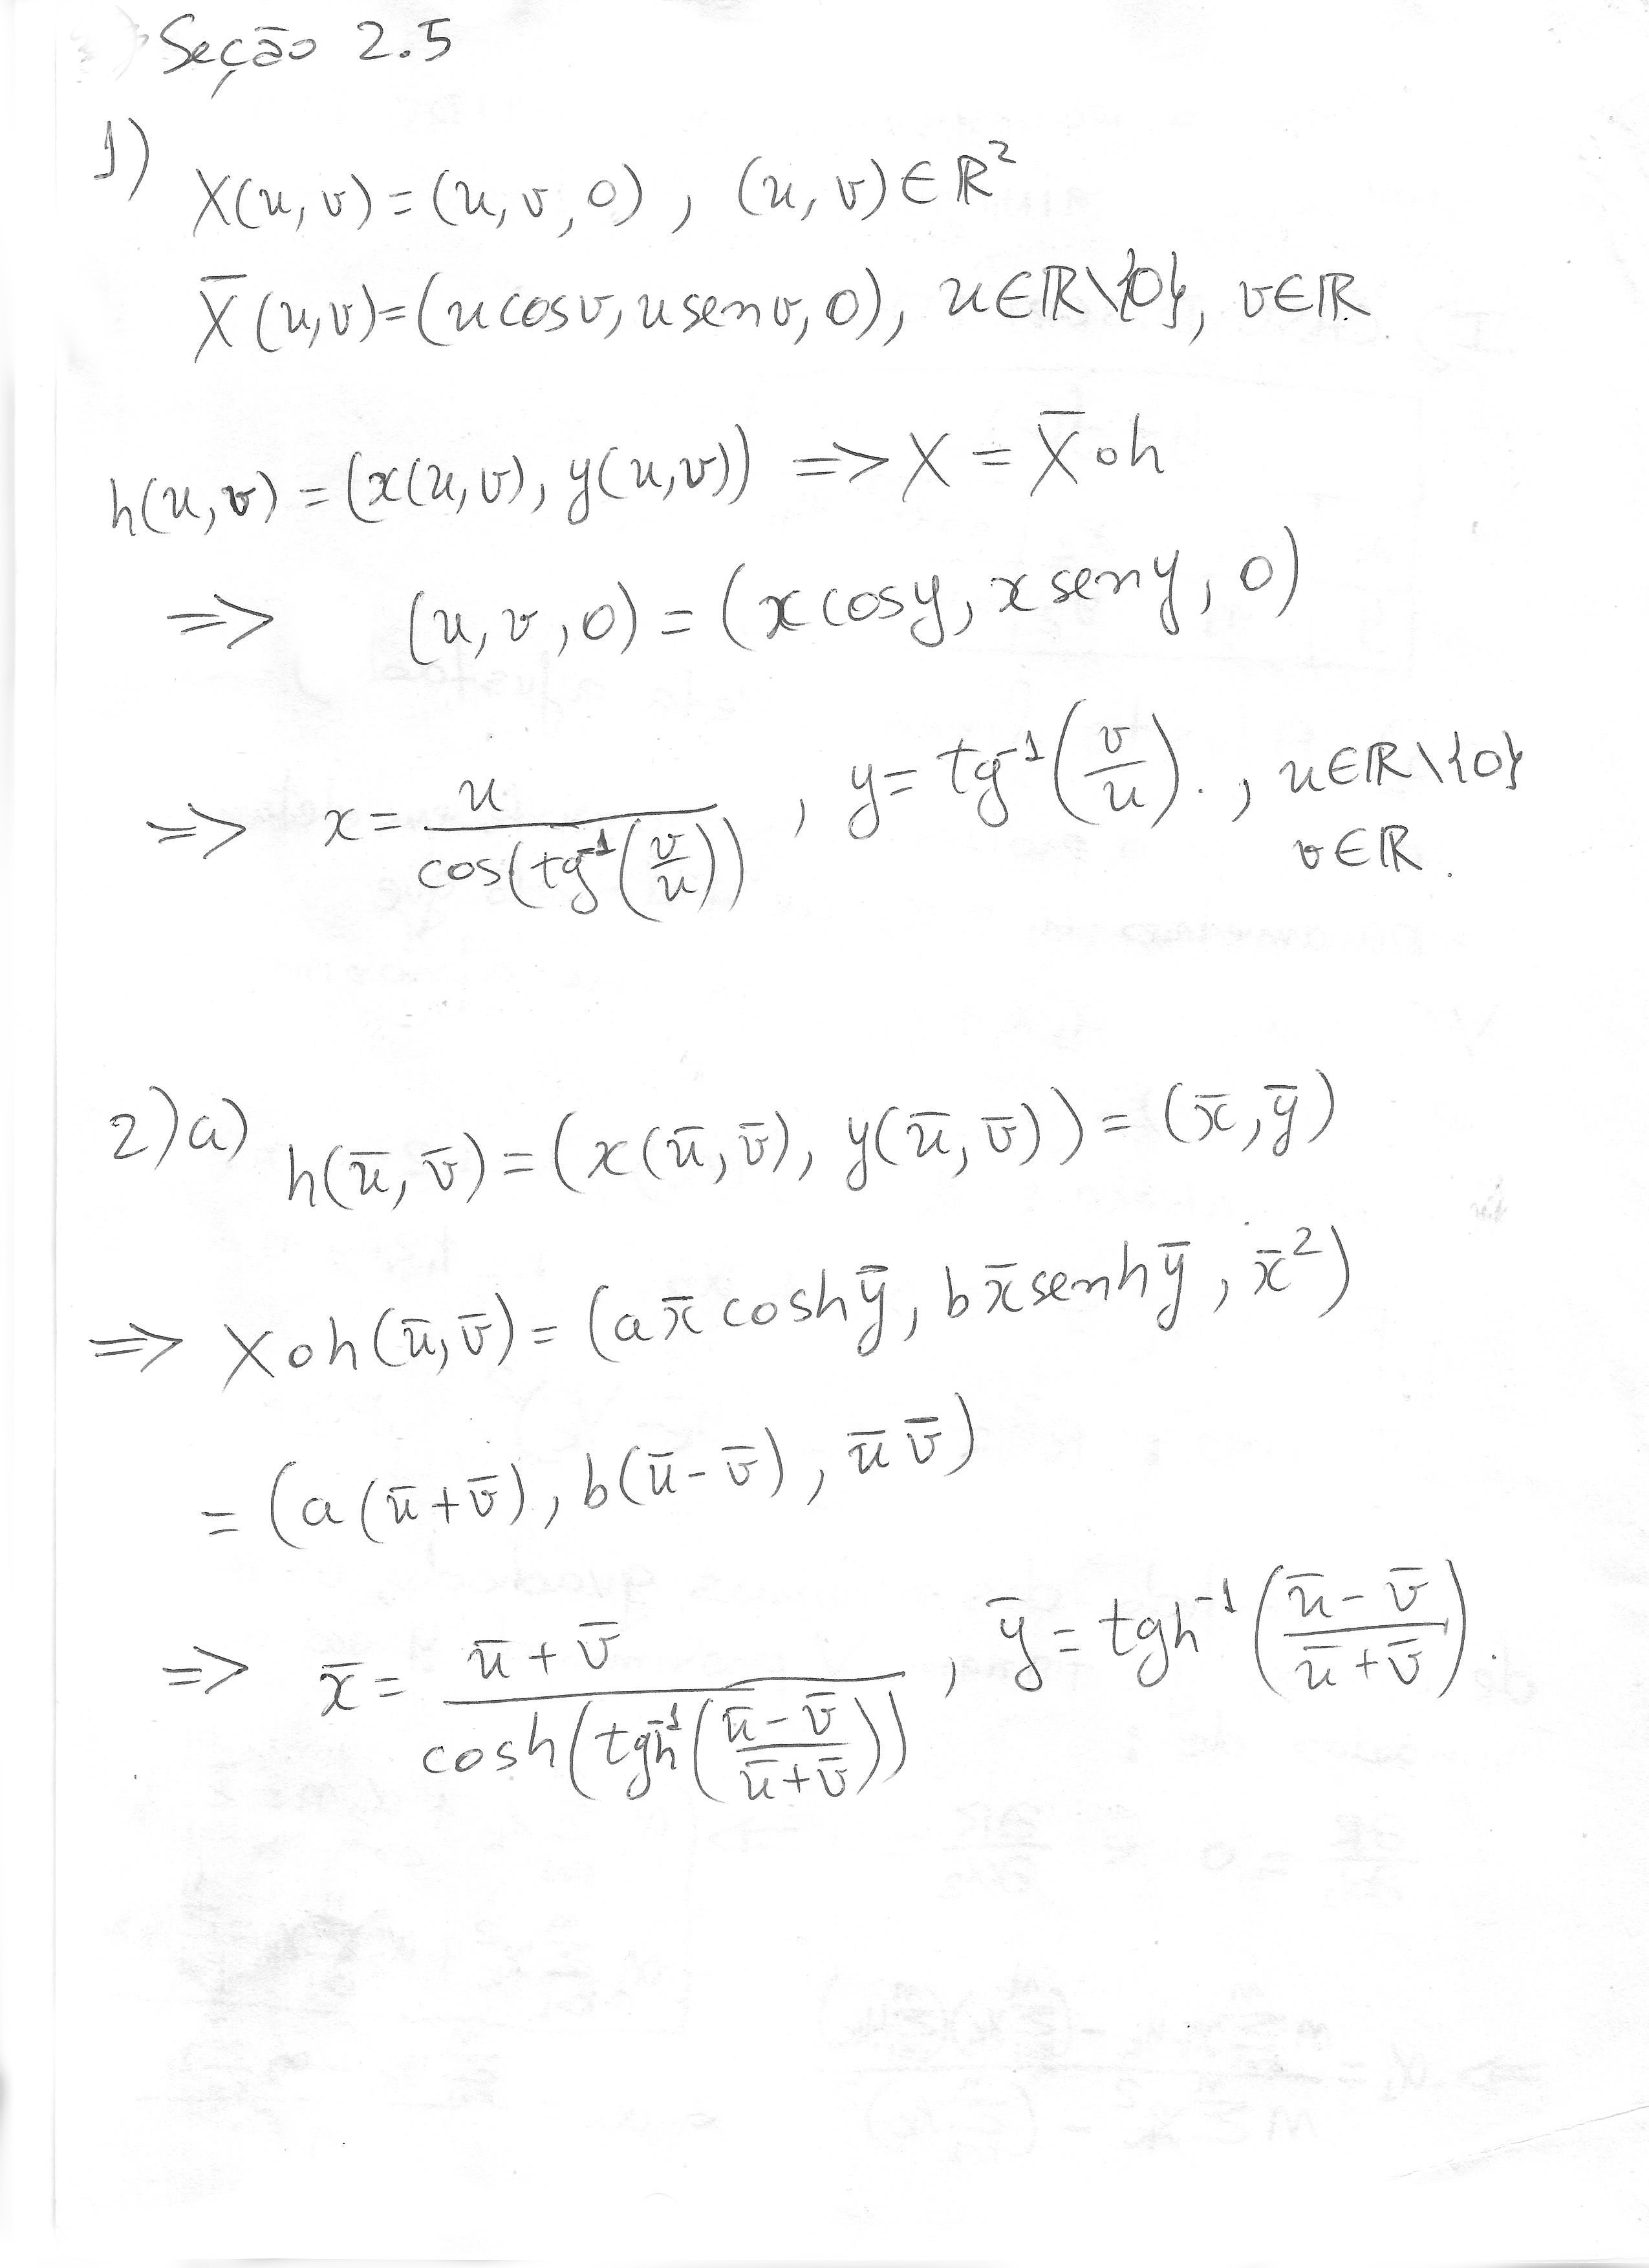 Seção 2.5
1)
X(u,v)=(u,v,0), (u,v)∈ℝ²
X̄(u,v)=(u cosv, u senv, 0), u∈ℝ\{0}, v∈ℝ.
h(u,v)=(x(u,v), y(u,v)) => X = X̄oh
=> (u,v,0)=(x cosy, x seny, 0)
=> x= u/cos(tg⁻¹(v/u)), y= tg⁻¹(v/u)., u∈ℝ\{0}
v∈ℝ.
2)a) h(ū,v̄)=(x(ū,v̄), y(ū,v̄))=(x̄,ȳ)
=> Xoh(ū,v̄)=(a x̄ coshȳ, b x̄ senhȳ, x̄²)
=(a(ū+v̄), b(ū-v̄), ū v̄)
=> x̄= (ū+v̄)/cosh(tgh⁻¹((ū-v̄)/(ū+v̄))), ȳ= tgh⁻¹((ū-v̄)/(ū+v̄)).